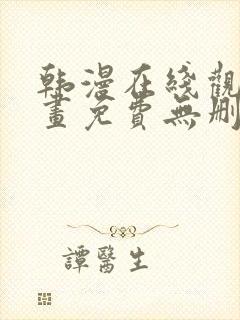 韩漫在线觀
畫免費無刪
譚醫生